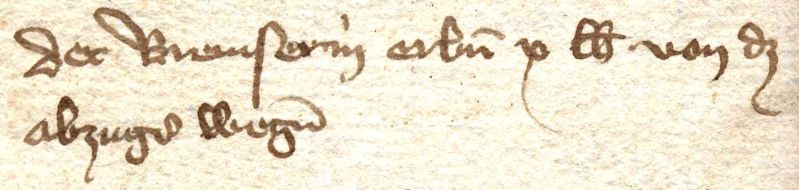 Der Bremserin erbñ x lb von dz
abzugs wegñ